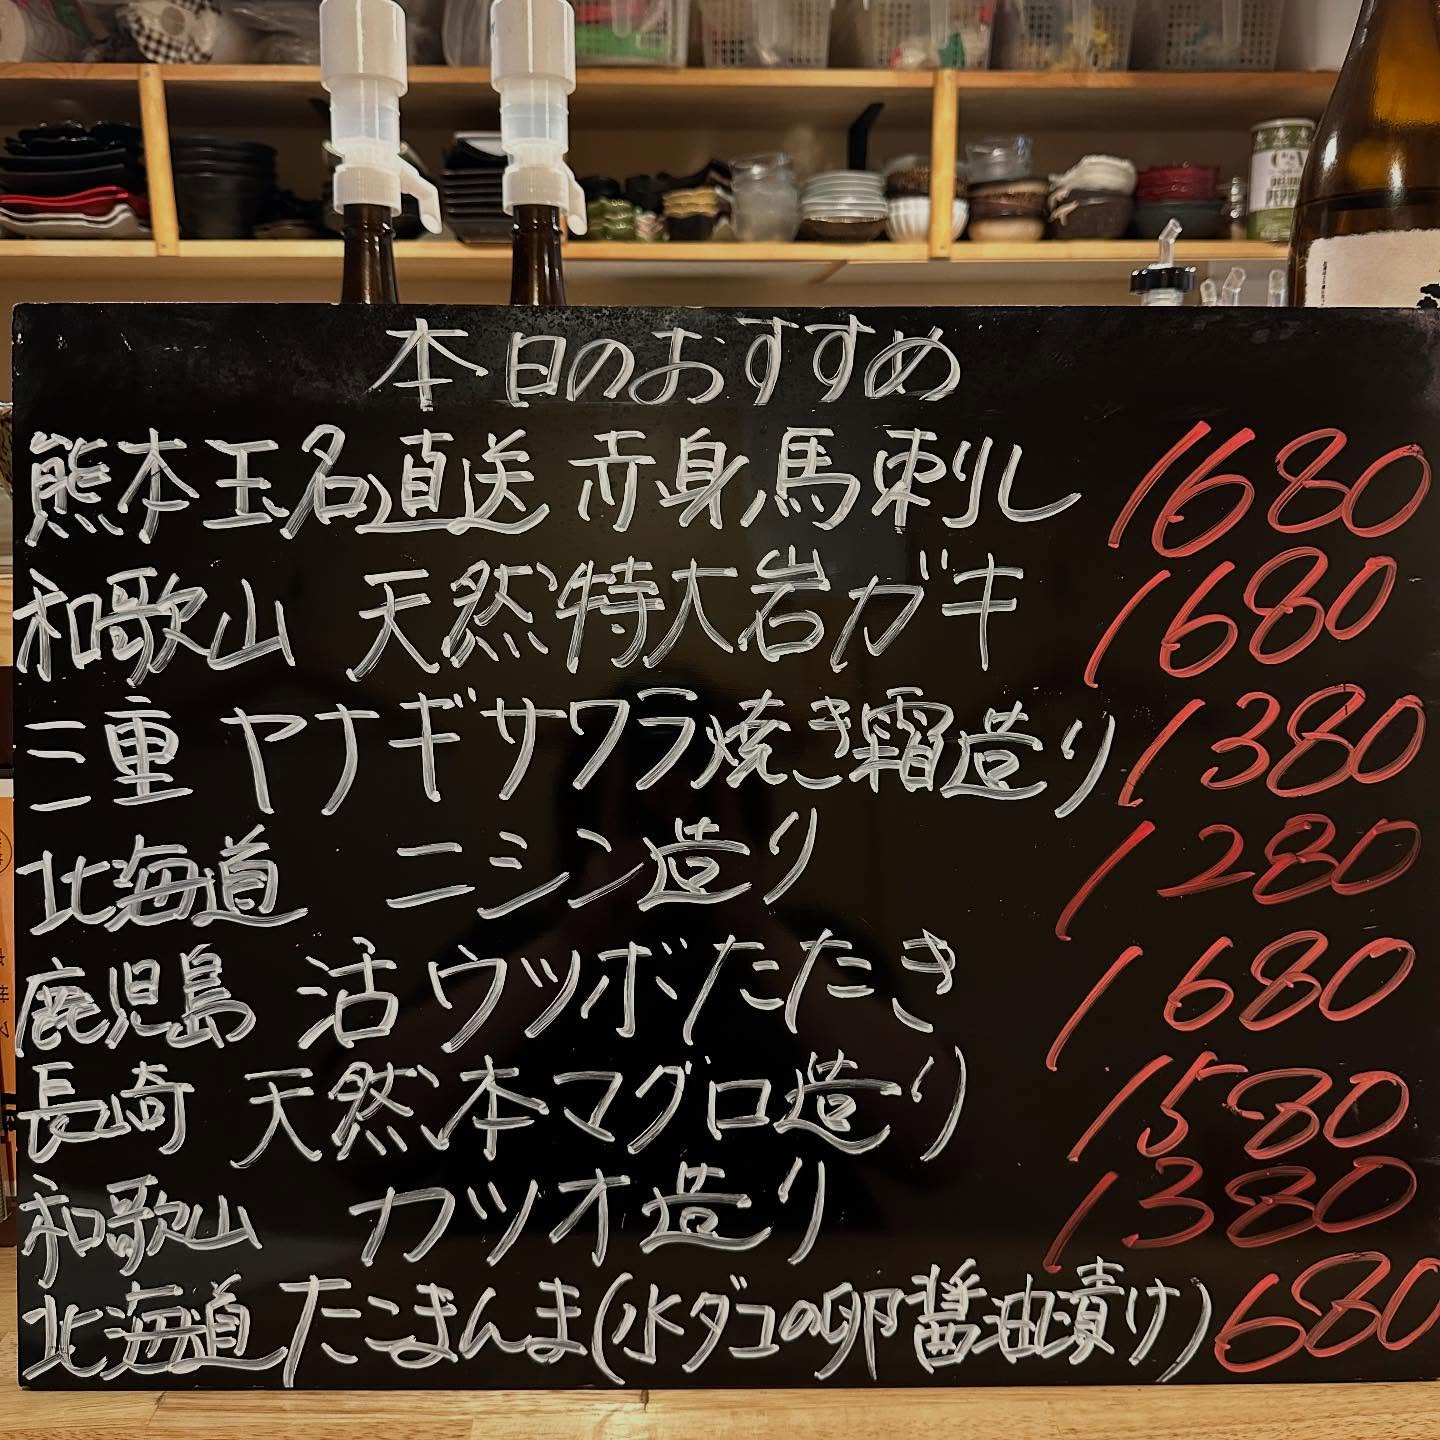 本日のおすすめ
熊本玉名直送 赤身馬刺し 1680
和歌山 天然特大岩ガキ 1680
三重 ヤナギサワラ焼き霜造り 1380
北海道 ニシン造り 1280
鹿児島 活ウツボたたき 1680
長崎 天然本マグロ造り 1580
和歌山 カツオ造り 1380
北海道 たこまんま(水ダコの卵醤油漬け) 680